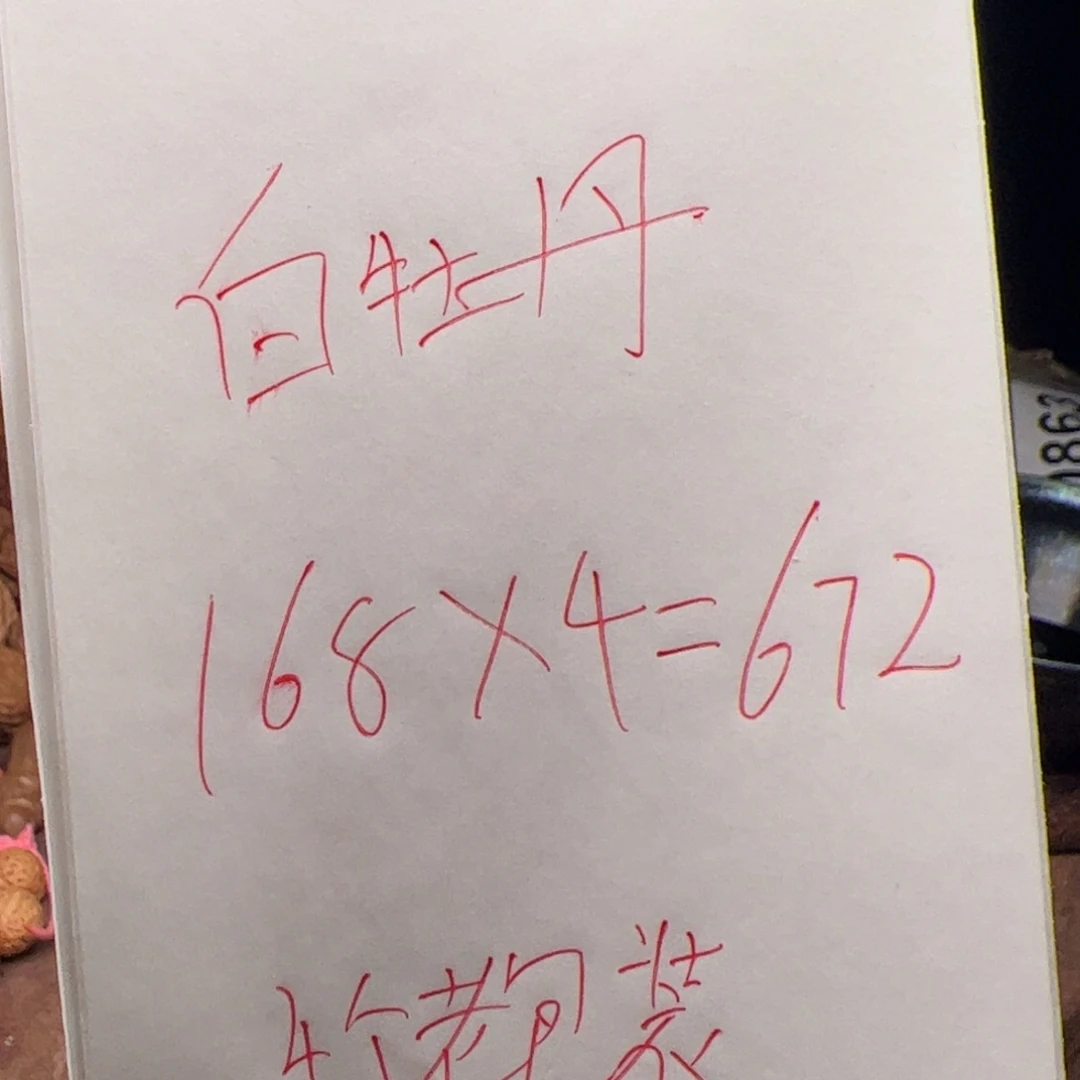 白牡丹
168×4=672
装
0863